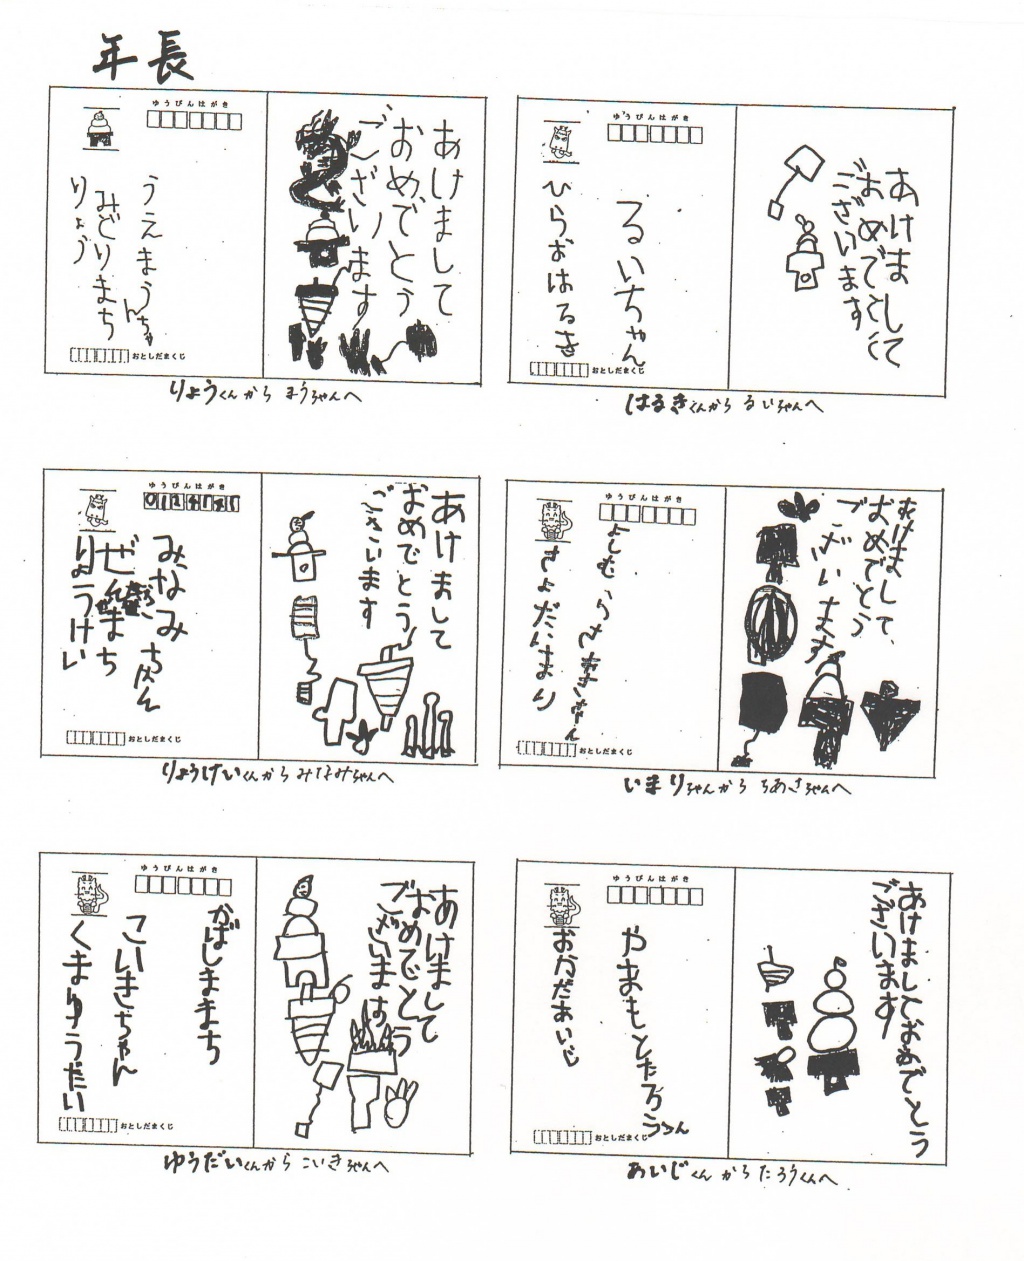 年長
ゆうびんはがき
うえまうちゃん
みどりまち
りょう
おとしだまくじ
あけまして
おめでとう
ございます
りょうくんから まうちゃんへ
ゆうびんはがき
るいちゃん
ひらおはるき
おとしだまくじ
あけまして
おめでとく
ございます
はるきくんから るいちゃんへ
ゆうびんはがき
みなみちゃん
りょうけい
おとしだまくじ
あけまして
おめでとう
ございます
りょうけいくんから みなみちゃんへ
ゆうびんはがき
おとしだまくじ
あけまして、
おめでとう
ございます
いまりちゃんから ちあきちゃんへ
ゆうびんはがき
かばしままち
こいきちゃん
くまゆうだい
おとしだまくじ
あけまして
おめでとう
ございます
ゆうだいくんから こいきちゃんへ
ゆうびんはがき
やまもとたろうくん
おかだあいじ
おとしだまくじ
あけましておめでとう
ございます
あいじくんから たろうくんへ